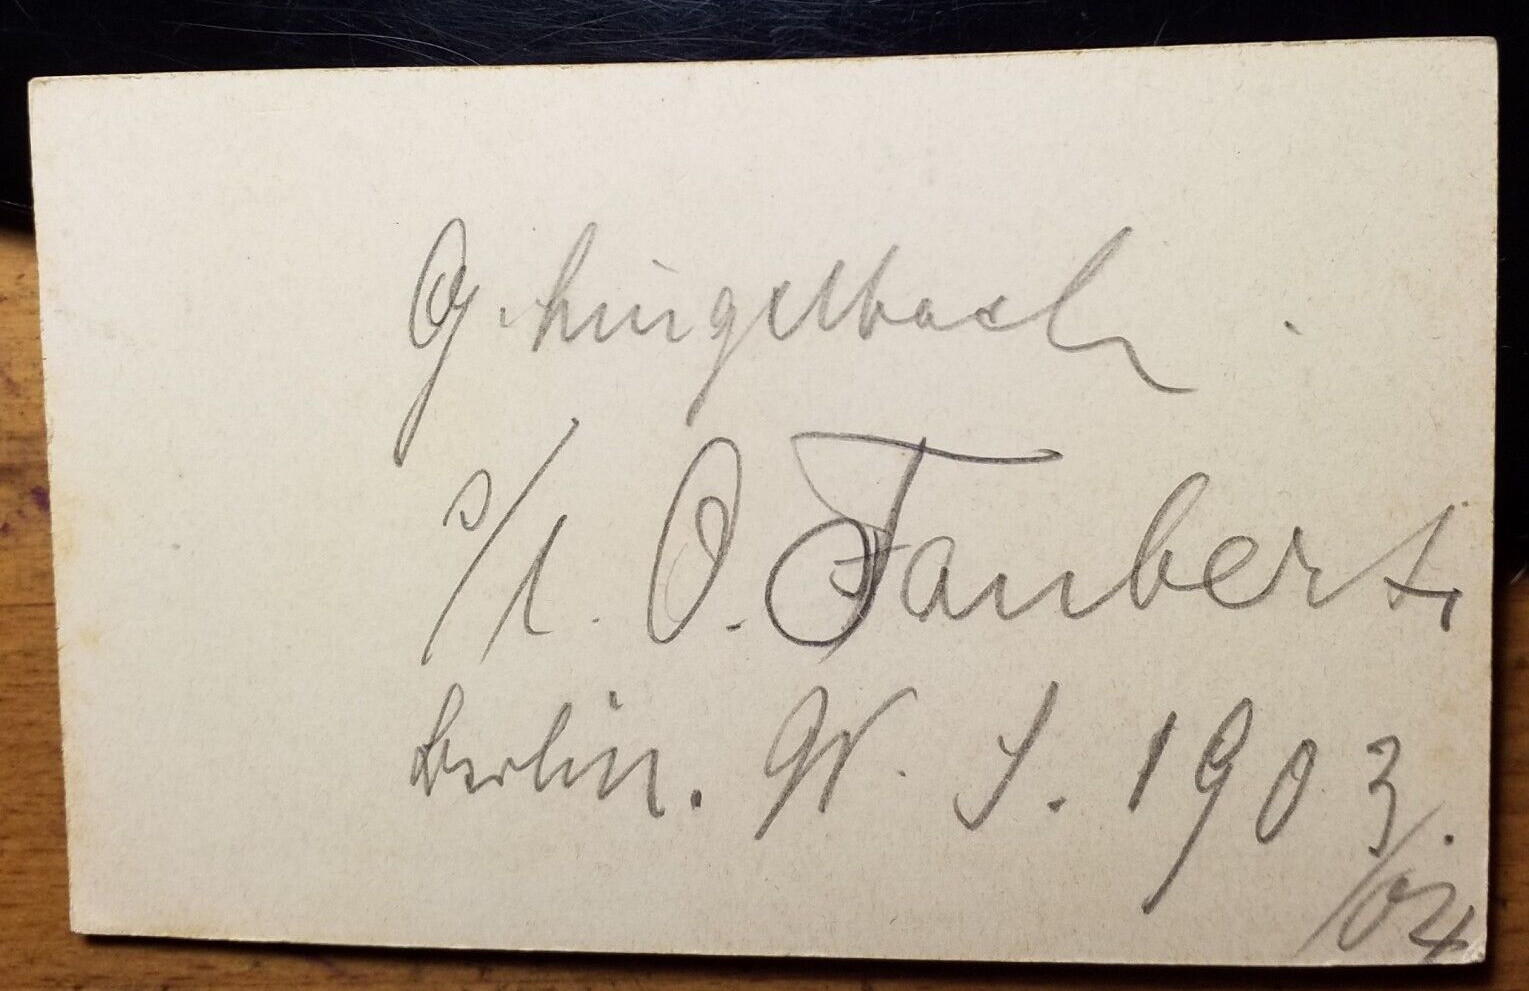 G. Lingelbach.
s/l. O. Taubert,
Berlin. W. S. 1903.
/04